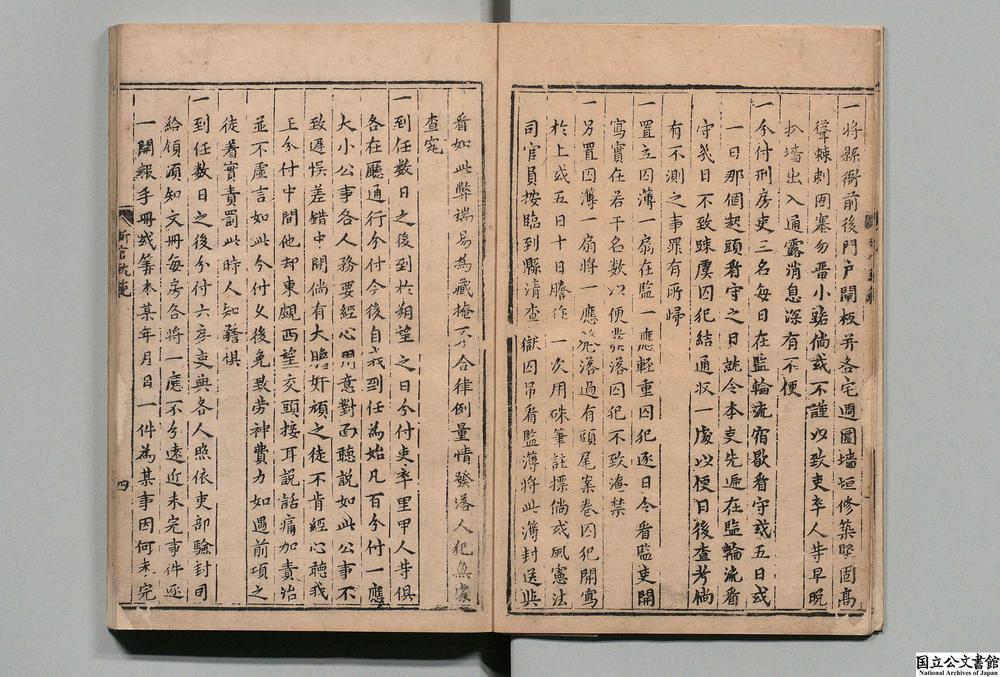 一將縣衙前後門戶閘板并各宅週圍墻垣修築堅固高
聳棘刺固塞勿畱小路倘或不謹以致吏卒人等早晚
扒墻出入通露消息深有不便
一令付刑房吏三名每日在監輪流宿歇看守或五日或
一日那個起頭看守之日就令本吏先遞在監輪流看
守幾日不致踈虞囚犯結通狀一處以便日後查考倘
有不測之事罪有所歸
一置立囚簿一扇在監一應輕重囚犯逐日令看監吏開
寫實在若干名數以便發落囚犯不致淹禁
一另置囚簿一扇將一應發落過有頭尾案卷囚犯開寫
於上或五日十日謄作一次用硃筆註摽倘或風憲法
司官員按臨到縣清查獄囚吊看監簿將此簿封送與
看如此弊端易為藏掩不合律例量情發落人犯
查究
一到任數日之後到於朔望之日分付吏卒里甲人等俱
各在廳通行分付今後自我到任為始凡百分付一應
大小公事各人務要經心用意對面聽說如此公事不
致遲悞差錯中間倘有大膽奸頑之徒不肯經心聽我
上分付中間他却東覷西望交頭接耳說話痛加責治
並不虛言如此分付久後免致勞神費力如遇前項之
徒着實責罰此時人知警惧
一到任數日之後分付六房吏典各人照依吏部驗封司
給領須知文冊每房各將一應不分遠近未完事件逐
一開報手冊或筭本某年月日一件為某事因何未完
新官軌範
四
国立公文書館
National Archives of Japan